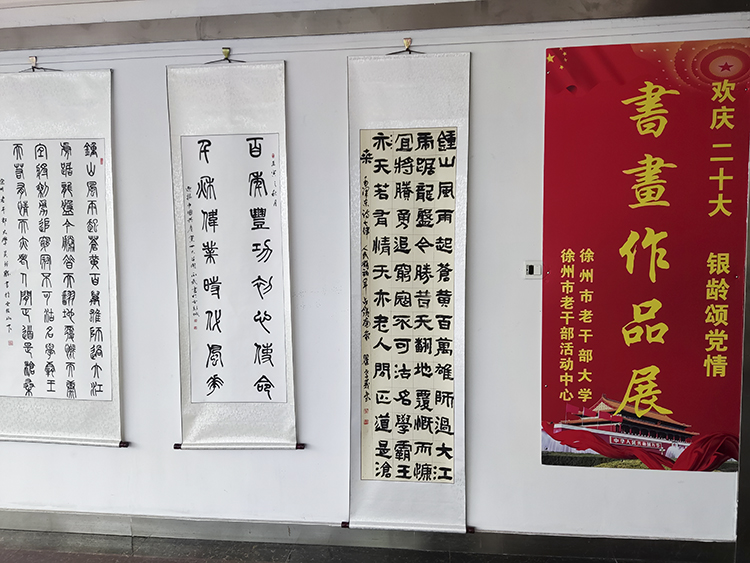 欢庆 二十大
银龄颂党情
書畫作品展
徐州市老干部大学
徐州市老干部活动中心
鍾山風雨起蒼黄百萬雄師過大江
虎踞龍盤今勝昔天翻地覆慨而慷
宜將勝勇追窮寇不可沽名學霸王
亦天若有情天亦老人間正道是滄
桑
百年豐功初心使命
千秋偉業時代風華
鍾山風雨起蒼黄百萬雄師過大江
虎踞龍盤今勝昔天翻地覆慨而慷
宜將剩勇追窮寇不可沽名學霸王
天若有情天亦老人間正道是滄桑